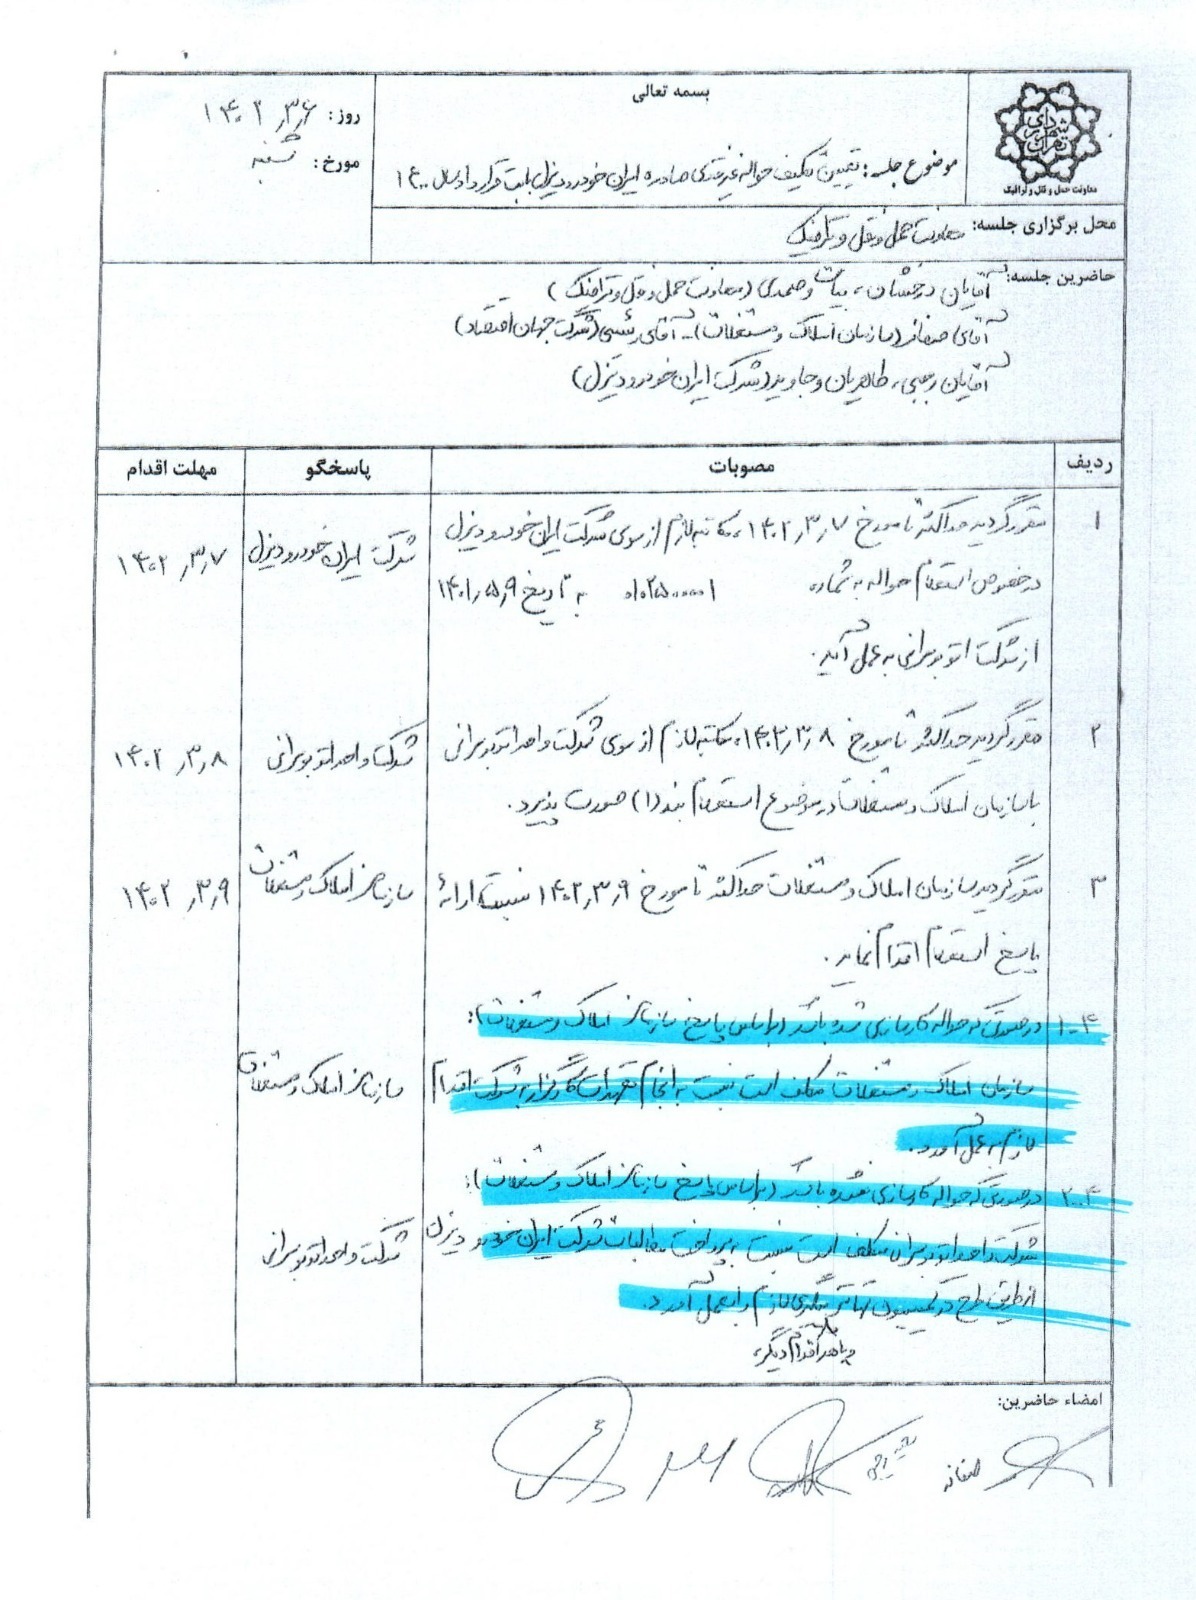 بسمه تعالی
شهرداری تهران
معاونت حمل و نقل و ترافیک
موضوع جلسه: تعیین تکلیف حواله غیرنقدی صادره ایران خودرو دیزل بابت قرارداد سال ۱۴۰۰
روز: ۱۴۰۲/۳/۶
مورخ: شنبه
محل برگزاری جلسه: معاونت حمل و نقل و ترافیک
حاضرین جلسه: آقایان درخشان، بیات و صمدی (معاونت حمل و نقل و ترافیک)
آقای صفائی (سازمان املاک و مستغلات) - آقای رئیسی (شرکت جهان اقتصاد)
آقایان رجبی، طاهریان و جاوید (شرکت ایران خودرو دیزل)
ردیف مصوبات پاسخگو مهلت اقدام
۱ مقرر گردید حداکثر تا مورخ ۱۴۰۲/۳/۷، مکاتبه لازم از سوی شرکت ایران خودرو دیزل شرکت ایران خودرو دیزل ۱۴۰۲/۳/۷
در خصوص استعلام حواله به شماره به تاریخ ۱۴۰۱/۵/۹
از شرکت اتوبوسرانی به عمل آید.
۲ مقرر گردید حداکثر تا مورخ ۱۴۰۲/۳/۸، مکاتبه لازم از سوی شرکت واحد اتوبوسرانی شرکت واحد اتوبوسرانی ۱۴۰۲/۳/۸
با سازمان املاک و مستغلات در موضوع استعلام بند (۱) صورت پذیرد.
۳ مقرر گردید سازمان املاک و مستغلات حداکثر تا مورخ ۱۴۰۲/۳/۹ نسبت به ارائه سازمان املاک و مستغلات ۱۴۰۲/۳/۹
پاسخ استعلام اقدام نماید.
۴-۱ در صورتی که حواله کارسازی شده باشد (براساس پاسخ سازمان املاک و مستغلات):
سازمان املاک و مستغلات مکلف است نسبت به انجام تعهدات کارگزار به شرکت اقدام سازمان املاک و مستغلات
لازم به عمل آورد.
۴-۲ در صورتی که حواله کارسازی نشده باشد (براساس پاسخ سازمان املاک و مستغلات):
شرکت واحد اتوبوسرانی مکلف است نسبت به پرداخت مطالبات شرکت ایران خودرو دیزل شرکت واحد اتوبوسرانی
از طریق طرح در کمیسیون تهاتر پیگیری لازم را به عمل آورد.
و یا هر اقدام دیگر،
امضاء حاضرین: